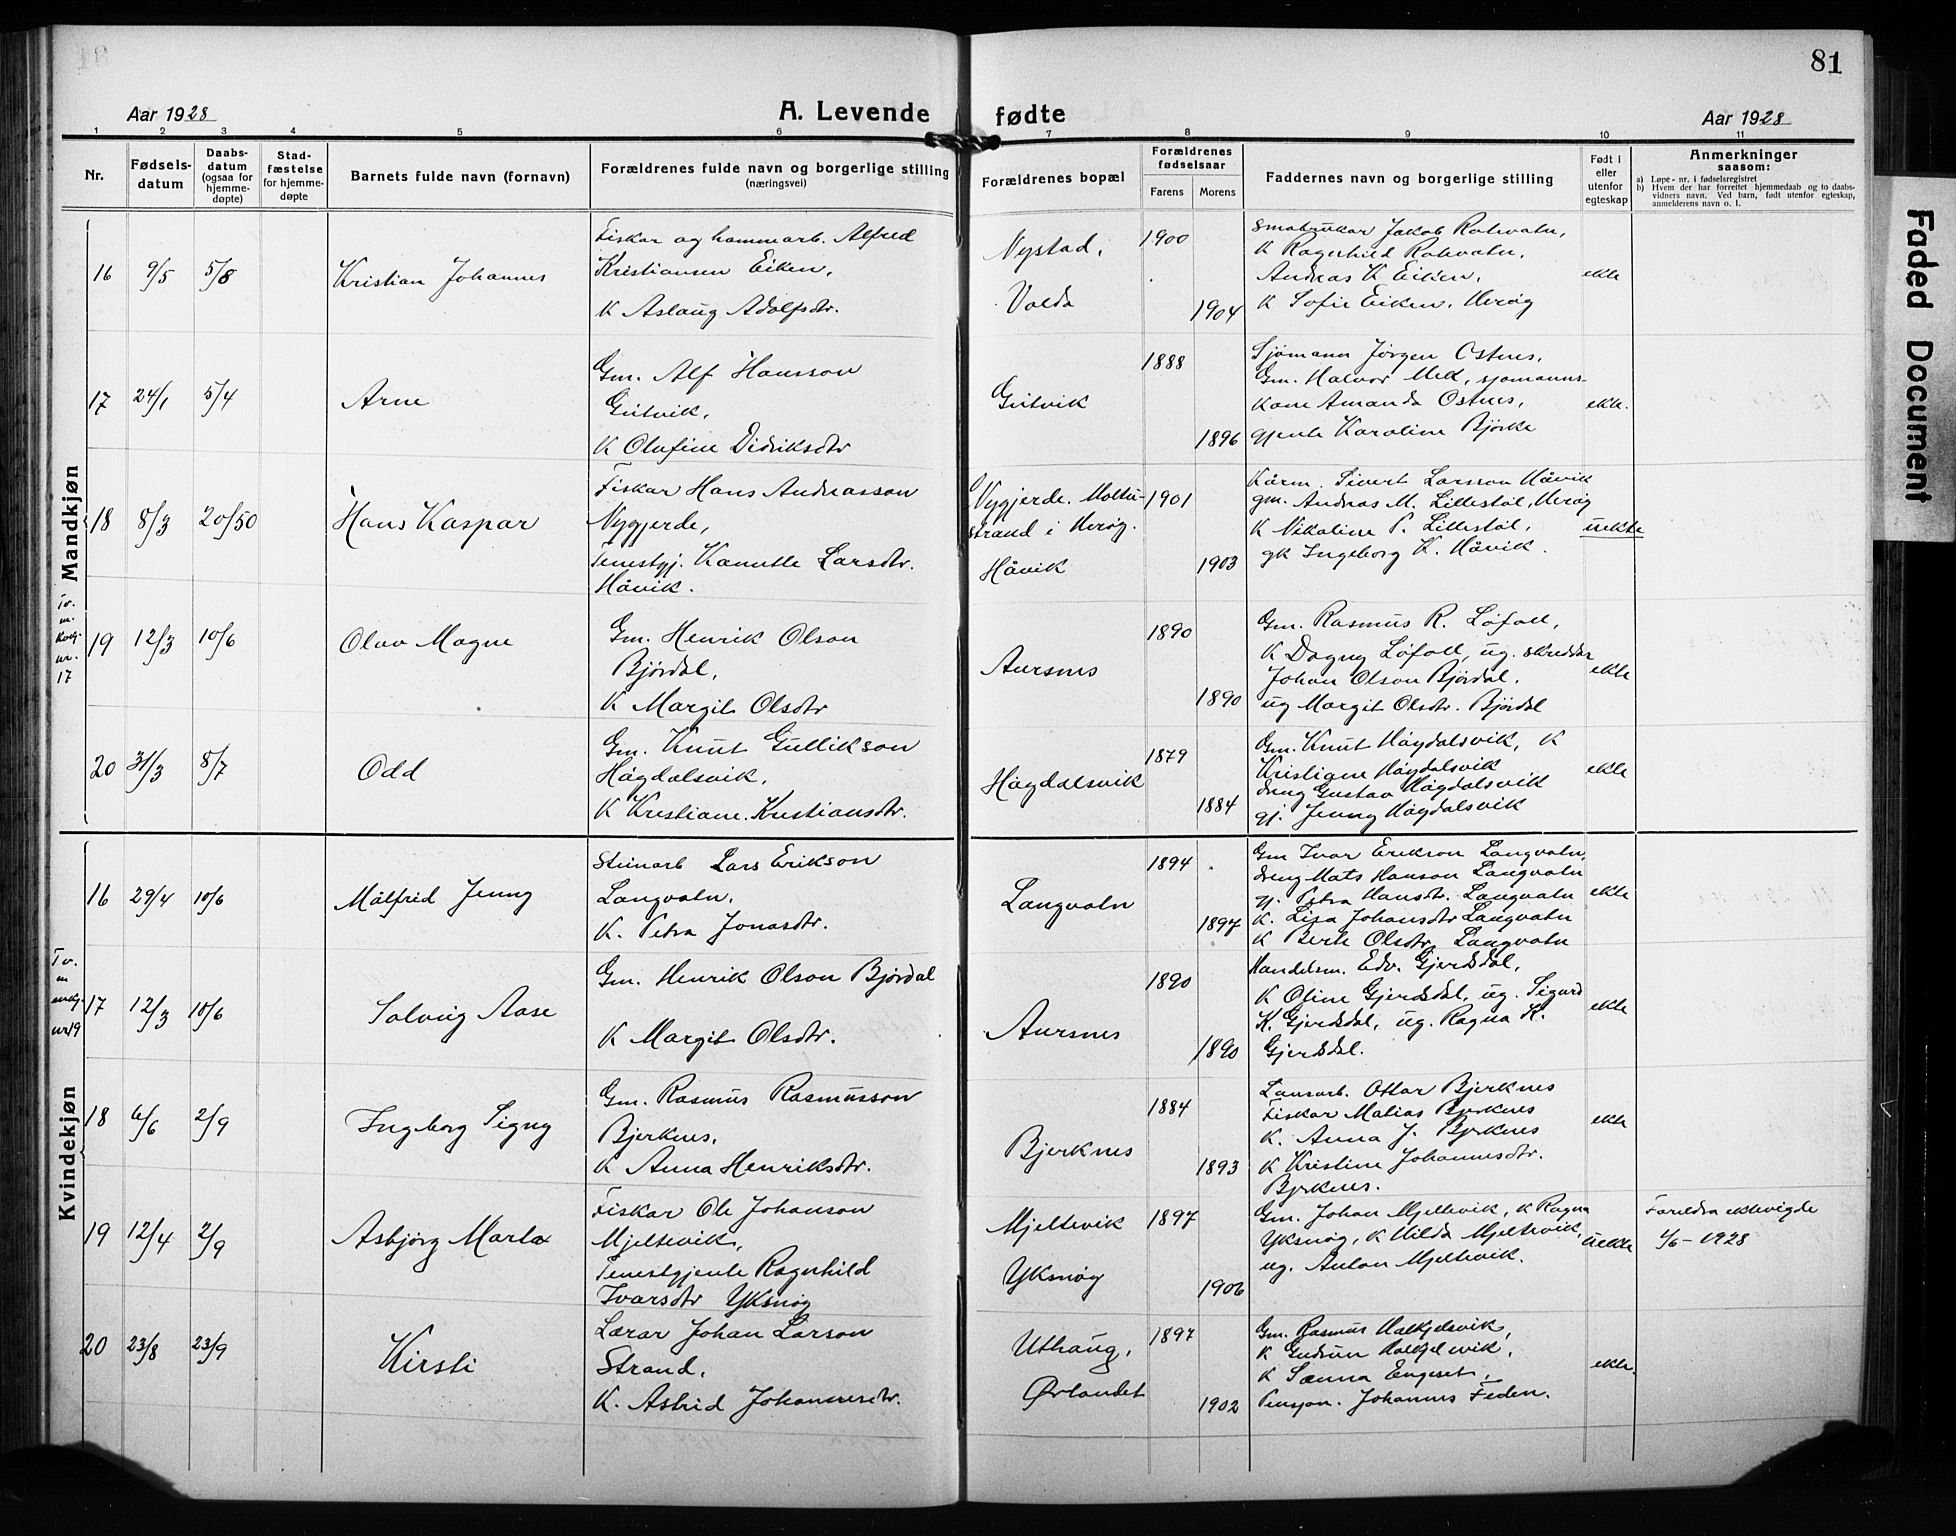 81
Aar 1928
A. Levende fødte
Aar 1928
1 2 3 4 5 6 7 8 9 10 11
Nr.
Fødsels-
datum
Daabs-
datum
(ogsaa for
hjemme-
døpte)
Stad-
fæstelse
for hjemme-
døpte
Barnets fulde navn (fornavn)
Forældrenes fulde navn og borgerlige stilling
(næringsvei)
Forældrenes bopæl
Forældrenes
fødselsaar
Farens Morens
Faddernes navn og borgerlige stilling
Født i
eller
utenfor
egteskap
Anmerkninger
saasom:
a) Løpe-nr. i fødselsregistret
b) Hvem der har forrettet hjemmedaab og to daabs-
vidners navn. Ved barn, født utenfor egteskap,
anmelderens navn o. l.
Mandkjøn
16 9/5 5/8 Kristian Johannes
Fiskar og hammarb. Alfred
Kristiansen Eiken,
K Aslaug Adolfsdtr.
Nystad,
Volda
1900
1904
Småbrukar Jakob Rotevatn,
K Ragnhild Rotevatn,
Andreas K Eiken,
K Sofie Eiken, Herøy
ekte
17 24/1 5/4 Arne
Gm. Alf Hansson
Gutvik,
K Olufine Didriksdtr
Gutvik
1888
1896
Sjømann Jørgen Ostnes,
Gm. Halvor Mek, sjømanns-
kone Amanda Ostnes,
gjente Karoline Bjørke
ekte.
18 8/3 20/50 Hans Kaspar
Fiskar Hans Andreasson
Nygjerde,
Tenestgj. Kamille Larsdtr.
Håvik.
Nygjerde. Moltu-
strand i Herøy.
Håvik
1901
1903
Kårm. Sivert Larsson Håvik
gm. Andreas M. Lillestøl, Herøy
K Nikoline P. Lillestøl,
gk Ingeborg K. Håvik.
uekte
Tv.
m.
kvkj.
nr.
17
19 12/3 10/6 Olav Magne
Gm. Henrik Olson
Bjørdal,
K Margit Olsdtr
Aursnes
1890
1890
Gm. Rasmus R. Løfoll,
K Dagny Løfoll, ug. skreddar
Johan Olson Bjørdal,
ug Margit Olsdtr. Bjørdal
ekte
20 31/3 8/7 Odd
Gm. Knut Gullikson
Høgdalsvik,
K Kristiane Kristiansdtr.
Høgdalsvik
1879
1884
Gm. Knut Høgdalsvik, K
Kristiane Høgdalsvik
dreng Gustav Høgdalsvik
gj. Jenny Høgdalsvik
ekte
Kvindekjøn
16 29/4 10/6 Målfrid Jenny
Steinarb Lars Erikson
Langvatn,
K. Petra Jonasdtr.
Langvatn
1894
1897
Gm Ivar Erikson Langvatn,
dreng Mats Hanson Langvatn
gj. Petra Hansdtr. Langvatn
K. Lisa Johansdtr Langvatn
K Berte Olsdtr. Langvatn
ekte
Tv.
m
mkj.
nr19
17 12/3 10/6 Solveig Aase
Gm. Henrik Olson Bjørdal
K Margit Olsdtr.
Aursnes
1890
1890
Handelsm. Edv. Gjerdsdal,
K Oline Gjerdsdal, ug. Sigurd
K. Gjerdsdal, ug. Ragna K.
Gjerdsdal.
ekte
18 6/6 2/9 Ingeborg Signy
Gm. Rasmus Rasmusson
Bjerknes,
K Anna Henriksdtr.
Bjerknes
1884
1893
Lausarb. Ottar Bjerknes
Fiskar Matias Bjerknes
K. Anna J. Bjerknes
K Kristine Johannesdtr.
Bjerknes.
ekte
19 12/4 2/9 Asbjørg Marta
Fiskar Ole Johanson
Mjeltevik,
Tenestgjente Ragnhild
Ivarsdtr Yksnøy
Mjeltevik
Yksnøy
1897
1906
Gm. Johan Mjeltevik, K Ragna
Yksnøy, K Hilda Mjeltevik,
ug. Anton Mjeltevik.
uekte
Foreldra ektevigde
1/6 - 1928
20 23/8 23/9 Kirsti
Lærar Johan Larson
Strand,
K. Astrid Johannesdtr.
Uthaug,
Ørlandet
1897
1902
Gm. Rasmus Halkjelsvik,
K Gudrun Halkjelsvik,
K Sanna Engeset,
Pensjon. Johannes Feden.
ekte
Faded Document